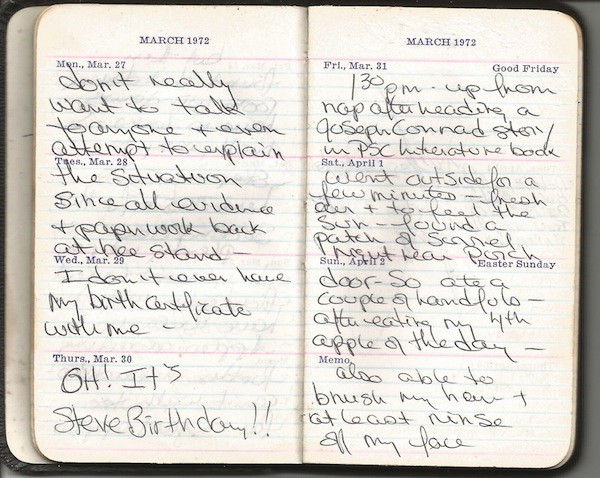 MARCH 1972
Mon., Mar. 27
don't really
want to talk
to anyone + even
attempt to explain
Tues., Mar. 28
the situation
since all evidence
+ paperwork back
at tree stand —
Wed., Mar. 29
I don't even have
my birth certificate
with me —
Thurs., Mar. 30
OH! It's
Steve Birthday!!
MARCH 1972
Fri., Mar. 31 Good Friday
1 30 pm. up from
nap after reading a
Joseph Conrad story
in PSC literature book
Sat., April 1
went outside for a
few minutes — fresh
air + to feel the
sun — found a
patch of sorrel
right near porch
Sun., April 2 Easter Sunday
door - so ate a
couple of handfuls —
after eating my 4th
apple of the day —
Memo.
also able to
brush my hair +
at least rinse
off my face